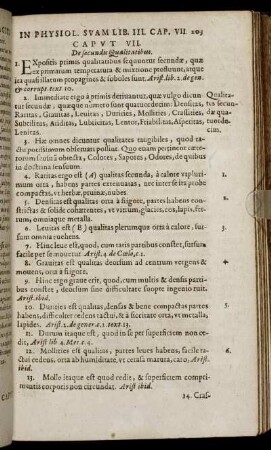 IN PHYSIOL. SVAM LIB. III. CAP. VII. 203
CAPVT VII.
De secundis Qualitatibus.
1. EXpositis primis qualitatibus sequuntur secundæ, quæ
ex primarum temperatura & mixtione profluunt, atque
ita quasi illarum propagines & soboles sunt. Arist. lib. 2. de gen.
& corrupt. text. 10.
2. Immediate ergo à primis derivantur, quæ vulgo dicun-
tur secundæ, quæque numero sunt quatuordecim: Densitas,
Raritas, Gravitas, Levitas, Durities, Mollities, Crassities,
Subtilitas, Ariditas, Lubricitas, Lentor, Friabilitas, Asperitas,
Lenitas.
Qualita-
tes secun-
dæ qua-
tuorde-
cim.
3. Hæ omnes dicuntur qualitates tangibiles, quod ta-
ctu potissimum obiectum possunt. Quo etiam pertinent cæte-
rorum sensuum obiecta, Colores, Sapores, Odores, de quibus
in doctrina sensuum.
4. Raritas ergo est (A) qualitas secunda, à calore vaplurimum
orta, habens partes extenuatas, nec inter se ita probe
compactas, vt herbæ, pruinæ, nubes.
1.
5. Densitas est qualitas orta à frigore, partes habens con-
strictas & solide cohærentes, vt vitrum, glacies, æs, lapis, fer-
rum, omniaque metalla.
2.
6. Levitas est (B) qualitas plerumque orta à calore, sur-
sum omnia vehens.
3.
7. Hinc leve est, quod, cum raris partibus constet, sursum
facile per se movetur. Arist. 4. de Cælo, c. 1.
8. Gravitas est qualitas deorsum ad centrum vergens &
movens, orta à frigore.
4.
9. Hinc ergo grave est, quod, cum multis & densis parti-
bus constet, deorsum sine difficultate suopte ingenio ruit.
Arist. ibid.
10. Durities est qualitas, densas & bene compactas partes
habens, difficulter cedens tactui, & à siccitate orta, vt metalla,
lapides. Arist. 2. de gener. c. 2. text. 13.
5.
11. Durum itaque est, quod in se per superficiem non ce-
dit, Arist. lib. 4. Met. c. 4.
12. Mollities est qualitas, partes leues habens, facile ta-
ctui cedens, orta ab humiditate, vt cera, massa, caro, Arist.
ibid.
6.
13. Molle itaque est, quod cedit, & superficiem compri-
mentis corporis non circundat. Arist. ibid.
14. Cras-